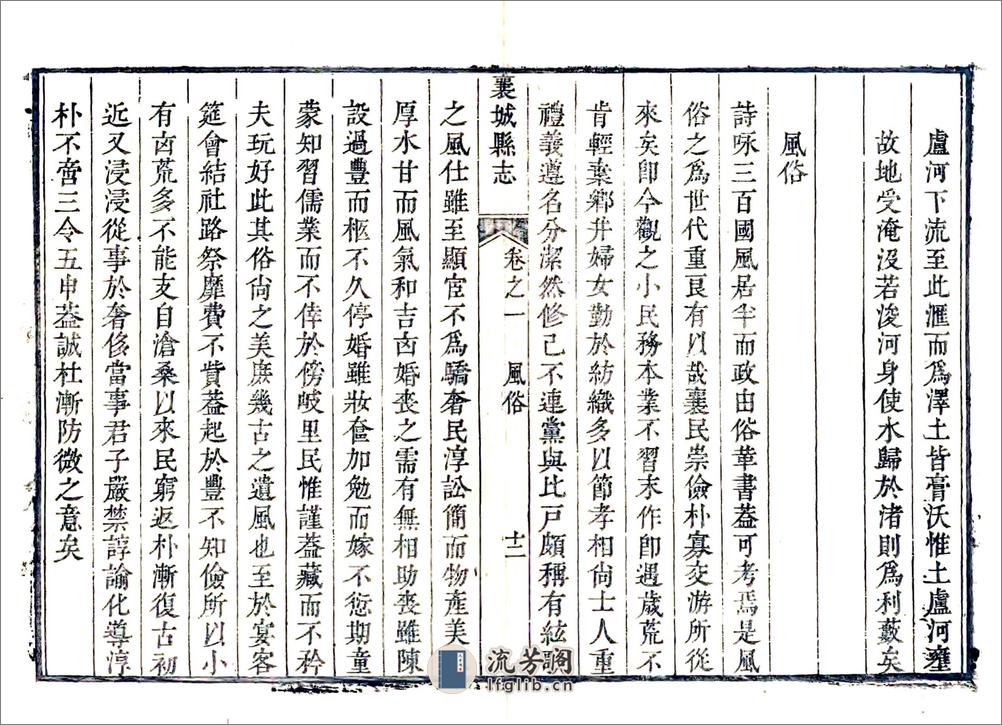 盧河下流至此滙而爲澤土皆膏沃惟土盧河壅
故地受淹沒若浚河身使水歸於渚則爲利藪矣
風俗
詩咏三百國風居半而政由俗革書葢可考焉是風
俗之爲世代重良有以哉襄民崇儉朴寡交游所從
來矣卽今觀之小民務本業不習末作卽遇歲荒不
肯輕棄鄉井婦女勤於紡織多以節孝相尙士人重
禮義遵名分潔然修己不連黨與比戸頗稱有絃歌
襄城縣志 卷之一 風俗 十二
之風仕雖至顯宦不爲驕奢民淳訟簡而物產美
厚水甘而風氣和吉凶婚喪之需有無相助喪雖陳
設過豐而柩不久停婚雖妝奩加勉而嫁不愆期童
蒙知習儒業而不倖於傍岐里民惟謹葢藏而不矜
夫玩好此其俗尙之美庶幾古之遺風也至於宴客
筵會結社路祭靡費不貲葢起於豐不知儉所以小
有凶荒多不能支自滄桑以來民窮返朴漸復古初
近又浸浸從事於奢侈當事君子嚴禁諄諭化導淳
朴不啻三令五申葢誠杜漸防微之意矣
流芳閣
lfglib.cn